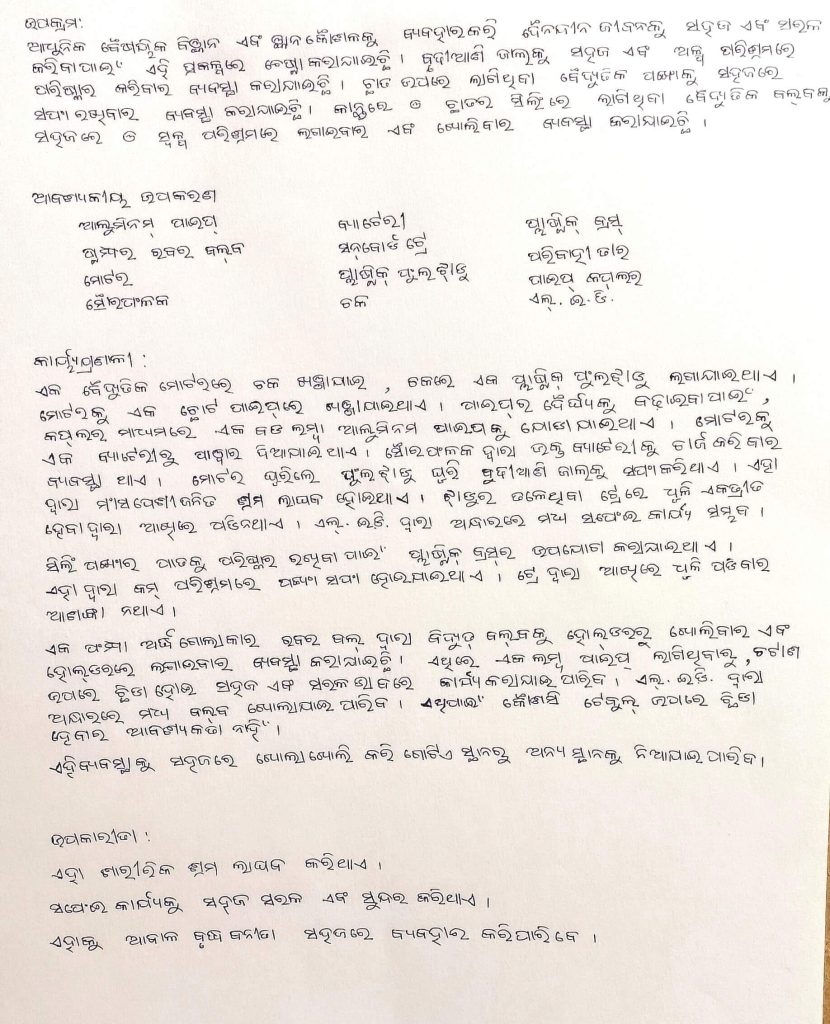 ଉପକ୍ରମ:
ଆଧୁନିକ ବୈଷୟିକ ବିଜ୍ଞାନ ଏବଂ ଜ୍ଞାନକୌଶଳକୁ ବ୍ୟବହାରକରି ଦୈନନ୍ଦୀନ ଜୀବନକୁ ସହଜ ଏବଂ ସରଳ
କରିବାପାଇଁ ଏହି ପ୍ରକଳ୍ପରେ ଚେଷ୍ଟାକରାଯାଇଛି । ବୁଢୀଆଣି ଜାଲକୁ ସହଜ ଏବଂ ଅଳ୍ପ ପରିଶ୍ରମରେ
ପରିଷ୍କାର କରିବାର ବ୍ୟବସ୍ଥା କରାଯାଇଛି । ଛାତ ଉପରେ ଲାଗିଥିବା ବୈଦ୍ୟୁତିକ ପଙ୍ଖାକୁ ସହଜରେ
ସଫା ରଖିବାର ବ୍ୟବସ୍ଥା କରାଯାଇଛି । କାନ୍ଥରେ ଓ ଛାତର ସିଲିଂରେ ଲାଗିଥିବା ବୈଦ୍ୟୁତିକ ବଲ୍‌ବକୁ
ସହଜରେ ଓ ସ୍ୱଳ୍ପ ପରିଶ୍ରମରେ ଲଗାଇବାର ଏବଂ ଖୋଲିବାର ବ୍ୟବସ୍ଥା କରାଯାଇଛି ।
ଆବଶ୍ୟକୀୟ ଉପକରଣ
ଆଲୁମିନମ୍ ପାଇପ୍ ବ୍ୟାଟେରୀ ପ୍ଲାଷ୍ଟିକ୍ ବ୍ରସ୍
ପ୍ଲମ୍ବର ରବର ବଲ୍‌ବ ସନ୍‌ବୋର୍ଡ ଟ୍ରେ ପରିବାହୀ ତାର
ମୋଟର ପ୍ଲାଷ୍ଟିକ୍ ଫୁଲଝାଡୁ ପାଇପ୍ କପ୍‌ଲର
ସୌରଫଳକ ଚକ ଏଲ୍. ଇ. ଡି.
କାର୍ଯ୍ୟପ୍ରଣାଳୀ :
ଏକ ବୈଦ୍ୟୁତିକ ମୋଟରରେ ଚକ ଖଞ୍ଜାଯାଇ , ଚକରେ ଏକ ପ୍ଲାଷ୍ଟିକ୍ ଫୁଲଝାଡୁ ଲଗାଯାଇଥାଏ ।
ମୋଟରକୁ ଏକ ଛୋଟ ପାଇପ୍‌ରେ ଖଞ୍ଜାଯାଇଥାଏ । ପାଇପ୍‌ର ଦୈର୍ଘ୍ୟକୁ ବଢ଼ାଇବାପାଇଁ ,
କପ୍‌ଲର ମାଧ୍ୟମରେ ଏକ ବଡ ଲମ୍ବା ଆଲୁମିନମ ପାଇପକୁ ଯୋଡାଯାଇଥାଏ । ମୋଟରକୁ
ଏକ ବ୍ୟାଟେରୀରୁ ପାୱାର ଦିଆଯାଇଥାଏ । ସୌରଫଳକ ଦ୍ୱାରା ଉକ୍ତ ବ୍ୟାଟେରୀକୁ ଚାର୍ଜ କରିବାର
ବ୍ୟବସ୍ଥା ଥାଏ । ମୋଟର ଘୁରିଲେ ଫୁଲଝାଡୁ ଘୁରି ବୁଢୀଆଣି ଜାଲକୁ ସଫାକରିଥାଏ । ଏହା
ଦ୍ୱାରା ମାଂସପେଶୀଜନିତ ଶ୍ରମ ଲାଘବ ହୋଇଥାଏ । ଝାଡୁର ତଳେଥିବା ଟ୍ରେରେ ଧୂଳି ଏକତ୍ରୀତ
ହେବାଦ୍ୱାରା ଆଖିରେ ପଡିନଥାଏ । ଏଲ୍. ଇ.ଡି. ଦ୍ୱାରା ଅନ୍ଧାରରେ ମଧ୍ୟ ସଫେଇ କାର୍ଯ୍ୟ ସମ୍ଭବ ।
ସିଲିଂ ପଙ୍ଖାର ପାତକୁ ପରିଷ୍କାର ରଖିବାପାଇଁ ପ୍ଲାଷ୍ଟିକ୍ ବ୍ରସ୍‌ର ଉପଯୋଗ କରାଯାଇଥାଏ ।
ଏହା ଦ୍ୱାରା କମ୍ ପରିଶ୍ରମରେ ପଙ୍ଖା ସଫା ହୋଇଯାଇଥାଏ । ଟ୍ରେ ଦ୍ୱାରା ଆଖିରେ ଧୂଳି ପଡିବାର
ଆଶଙ୍କା ନଥାଏ ।
ଏକ ଫମ୍ପା ଅର୍ଦ୍ଧଗୋଲାକାର ରବର ବଲ୍ ଦ୍ୱାରା ବିଦ୍ୟୁତ୍ ବଲ୍‌ବକୁ ହୋଲ୍‌ଡରରୁ ଖୋଲିବାର ଏବଂ
ହୋଲ୍‌ଡରରେ ଲଗାଇବାର ବ୍ୟବସ୍ଥା କରାଯାଇଛି । ଏଥିରେ ଏକ ଲମ୍ବା ପାଇପ୍ ଲାଗିଥିବାରୁ , ଚଟାଣ
ଉପରେ ଛିଡା ହୋଇ ସହଜ ଏବଂ ସରଳ ଭାବରେ କାର୍ଯ୍ୟ କରାଯାଇ ପାରିବ । ଏଲ୍. ଇ.ଡି. ଦ୍ୱାରା
ଅନ୍ଧାରରେ ମଧ୍ୟ ବଲ୍‌ବ ଖୋଲାଯାଇ ପାରିବ । ଏଥିପାଇଁ କୌଣସି ଟେବୁଲ୍ ଉପରେ ଛିଡା
ହେବାର ଆବଶ୍ୟକତା ନାହିଁ ।
ଏହିବ୍ୟବସ୍ଥାକୁ ସହଜରେ ଖୋଲାଖୋଲି କରି ଗୋଟିଏ ସ୍ଥାନରୁ ଅନ୍ୟ ସ୍ଥାନକୁ ନିଆଯାଇପାରିବ ।
ଉପକାରୀତା :
ଏହା ଶାରୀରିକ ଶ୍ରମ ଲାଘବ କରିଥାଏ ।
ସଫେଇ କାର୍ଯ୍ୟକୁ ସହଜ ସରଳ ଏବଂ ସୁନ୍ଦର କରିଥାଏ ।
ଏହାକୁ ଆବାଳ ବୃଦ୍ଧ ବନୀତା ସହଜରେ ବ୍ୟବହାର କରିପାରିବେ ।